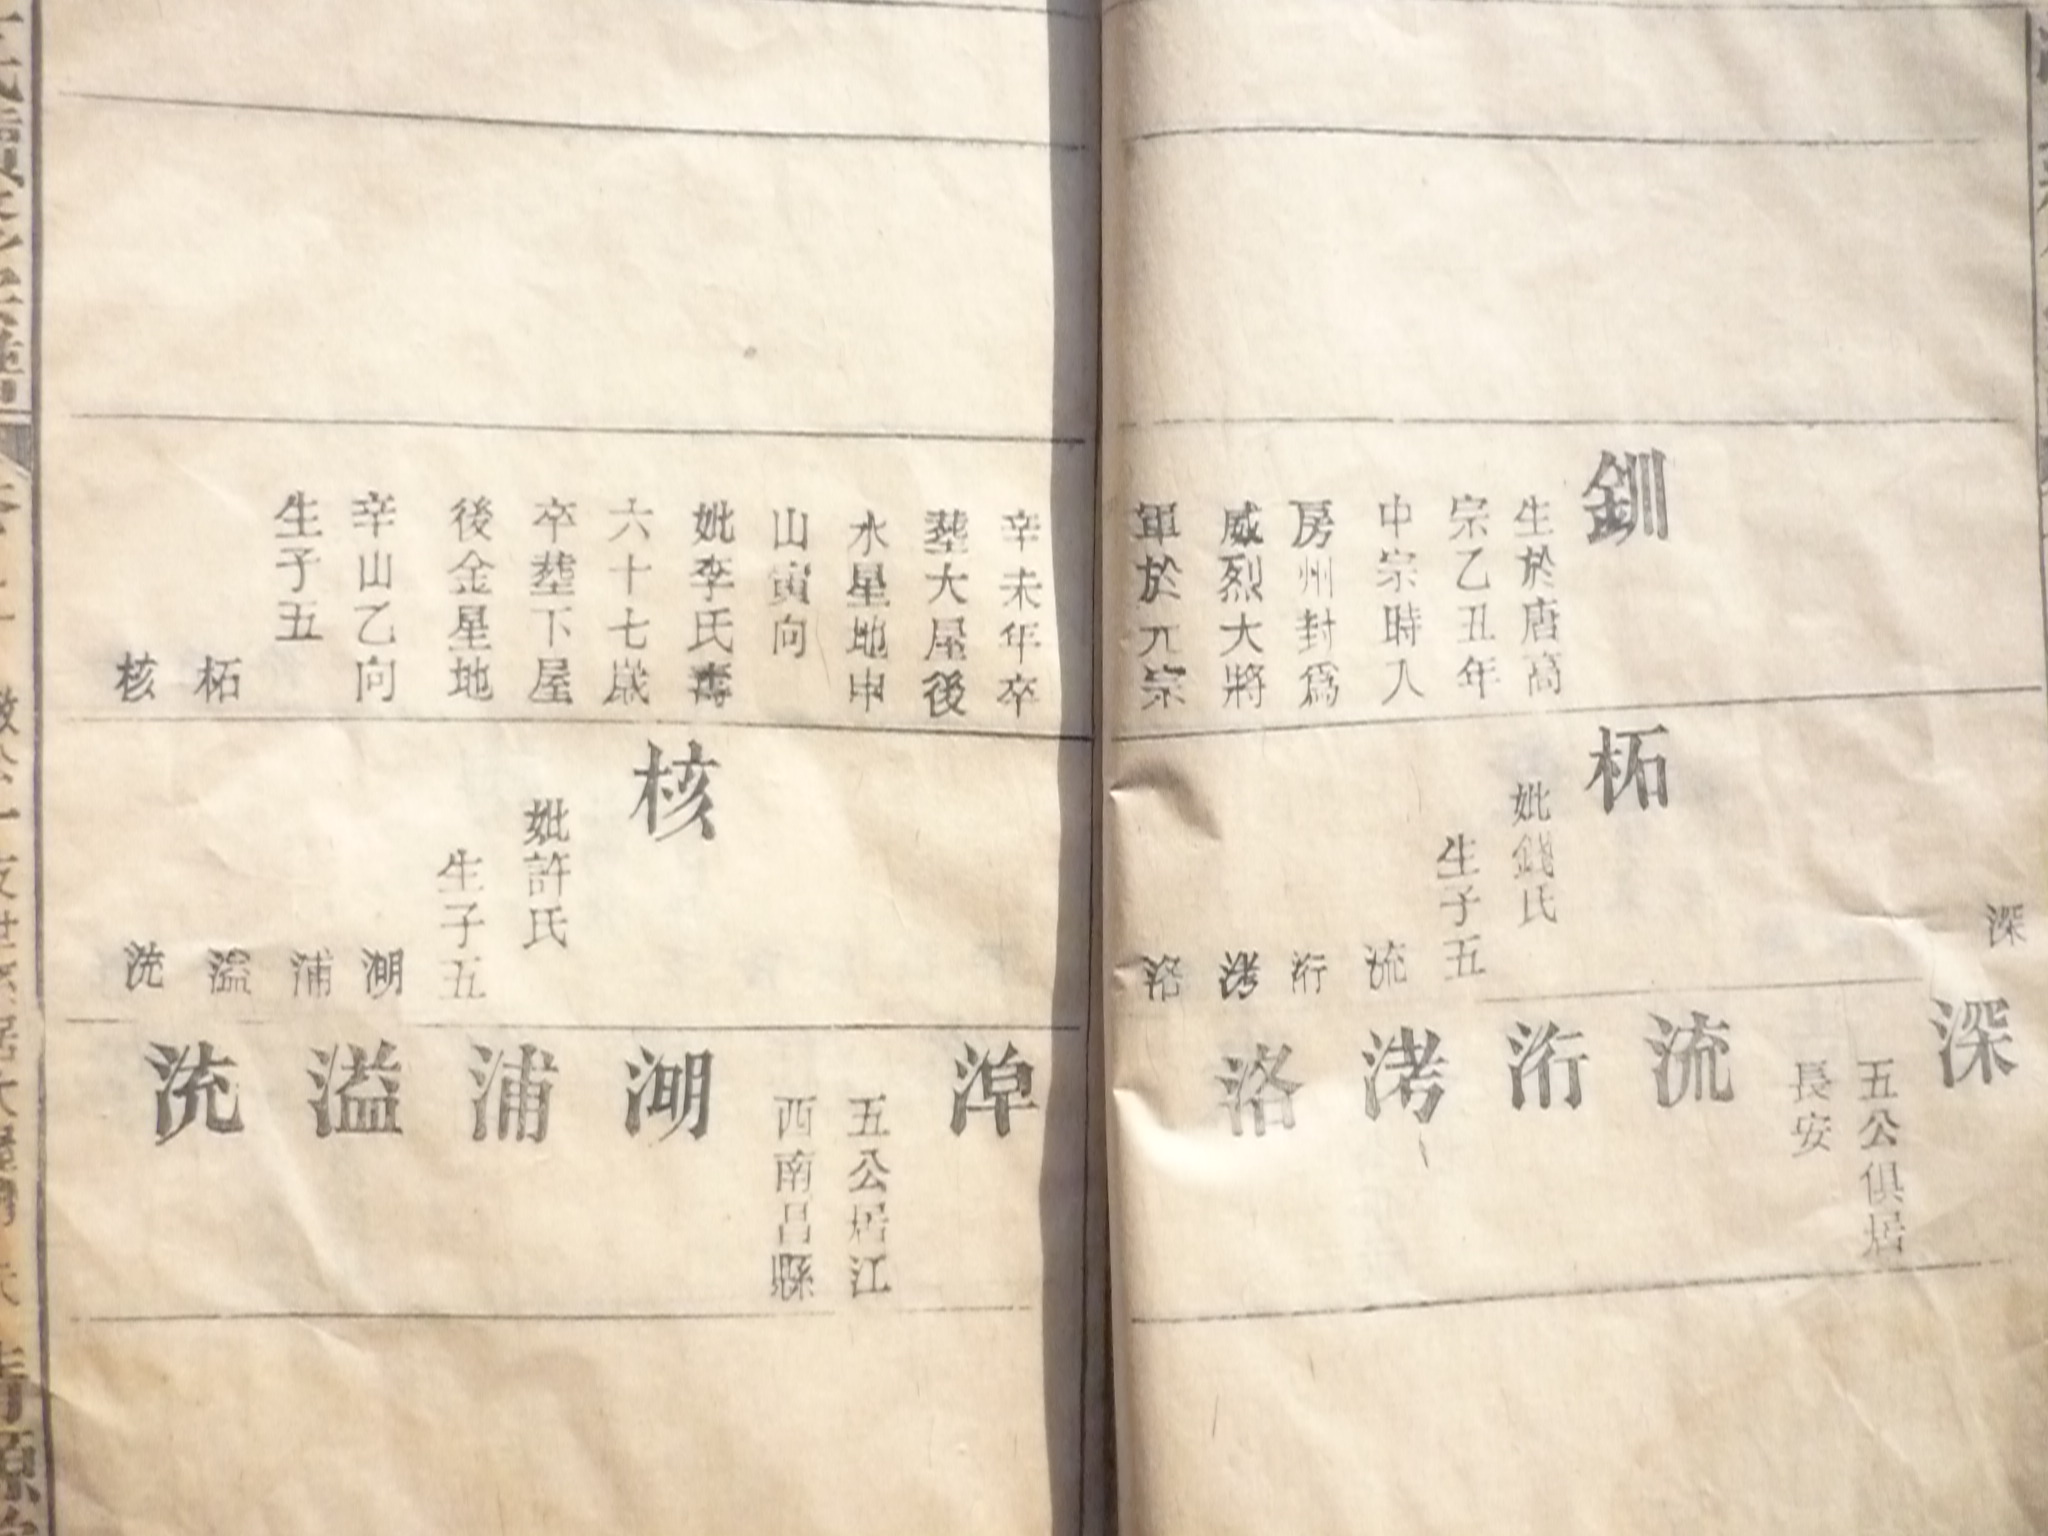 釧
生於唐高
宗乙丑年
中宗時入
房州封爲
威烈大將
軍於元宗
辛未年卒
塟大屋後
水星地申
山寅向
妣李氏壽
六十七歲
卒塟下屋
後金星地
辛山乙向
生子五
柘
核
深
柘
妣錢氏
生子五
流
洐
洘
洛
核
妣許氏
生子五
湖
浦
溢
深
五公俱居
長安
流
洐
洘
洛
淖
五公居江
西南昌縣
湖
浦
溢